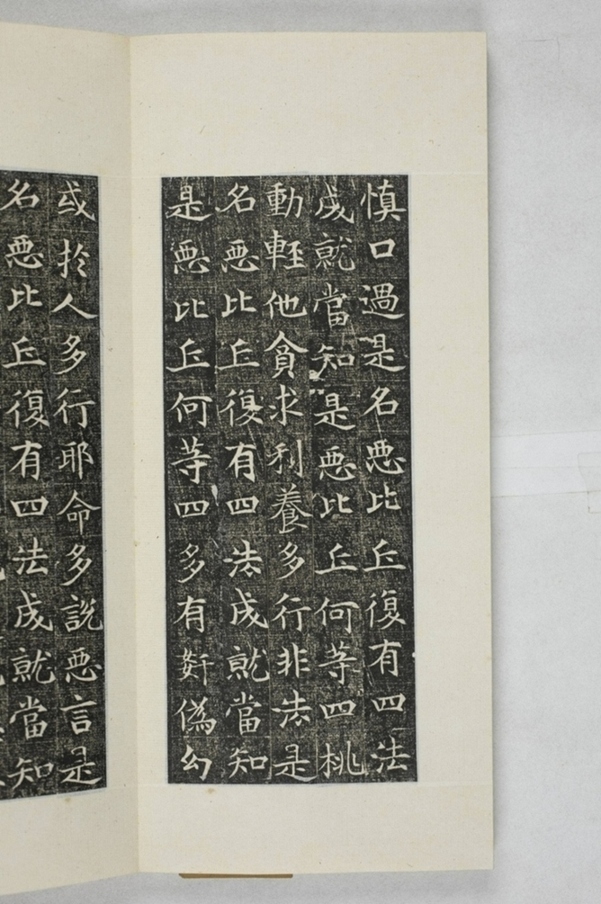 慎口過是名惡比丘復有四法
成就當知是惡比丘何等四桃
動輕他貪求利養多行非法是
名惡比丘復有四法成就當知
是惡比丘何等四多有姧偽幻
或扵人多行耶命多説惡言是
名惡比丘復有四法成就當知